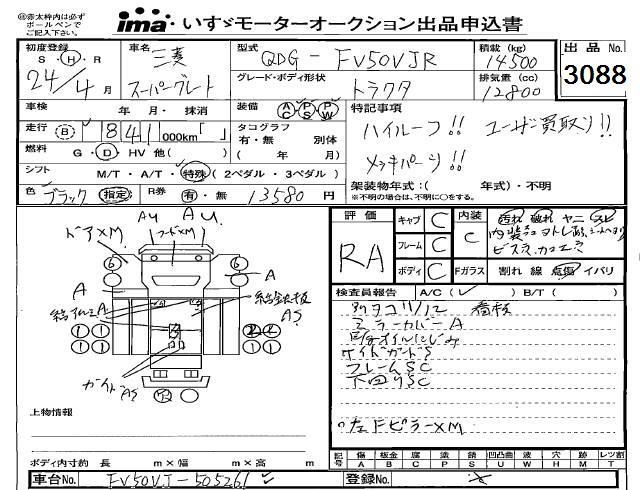 ㊟赤太枠内は必ず
ボールペンで
ご記入下さい。
ima いすゞモーターオークション出品申込書
初度登録
S・H・R
24/4月
車名
三菱
スーパーグレート
型式
QDG-FV50VJR
グレード・ボディ形状
トラクタ
積載(kg)
14500
排気量(cc)
12800
出品No.
3088
車検 年・月・抹消
装備 AC PS PW
走行 B 841 000km「 」
タコグラフ
有・無 別体
( 年 月)
燃料 G・D・HV 他( )
シフト M/T・A/T・特殊(2ペダル・3ペダル)
色 ブラック 指定
R券 有・無 13580円
特記事項
ハイルーフ!! ユーザー買取り!!
メッキパーツ!!
架装物年式:( 年式)・不明
※不明の場合は、不明に○をする。
評価
RA
キャブ C
フレーム C
ボディ C
内装
C
汚れ 破れ ヤニ スレ
Fガラス 割れ 線 点傷 イバリ
検査員報告 A/C( ✓ ) B/T( )
ミラーカバーA
サイドガードS
フレームSC
下回りSC
左FピラーXM
AU AU
ドアXM
フードXM
6 6
A A
AS
1 1 1 1
ガイドAS
上物情報
ボディ内寸約 長 m×幅 m×高 m
記号 傷A 板金B 腐C 塗P 錆S 凹凸曲U 凹W 穴H 跡M レンズ割T
車台No. FV50VJ-505261
登録No.